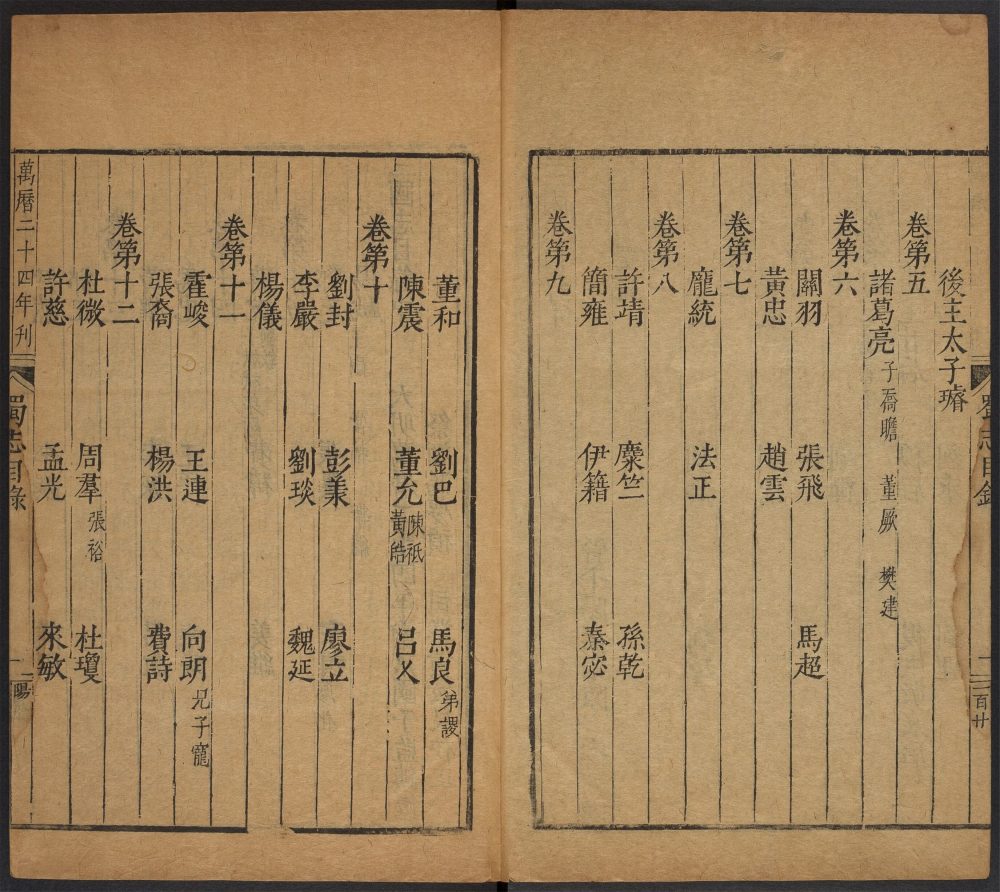 蜀志目錄
一
二百廿
後主太子璿
卷第五
諸葛亮 子喬瞻 董厥 樊建
卷第六
關羽 張飛 馬超
黃忠 趙雲
卷第七
龐統 法正
卷第八
許靖 麋竺 孫乾
簡雍 伊籍 秦宓
卷第九
董和 劉巴 馬良 弟謖
陳震 董允 陳祗 黃皓 呂乂
卷第十
劉封 彭羕 廖立
李嚴 劉琰 魏延
楊儀
卷第十一
霍峻 王連 向朗 兄子寵
張裔 楊洪 費詩
卷第十二
杜微 周羣 張裕 杜瓊
許慈 孟光 來敏
萬曆二十四年刊
蜀志目錄